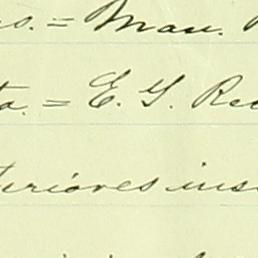 s. = Man.
ta. = E. G. Rec
teriores ins